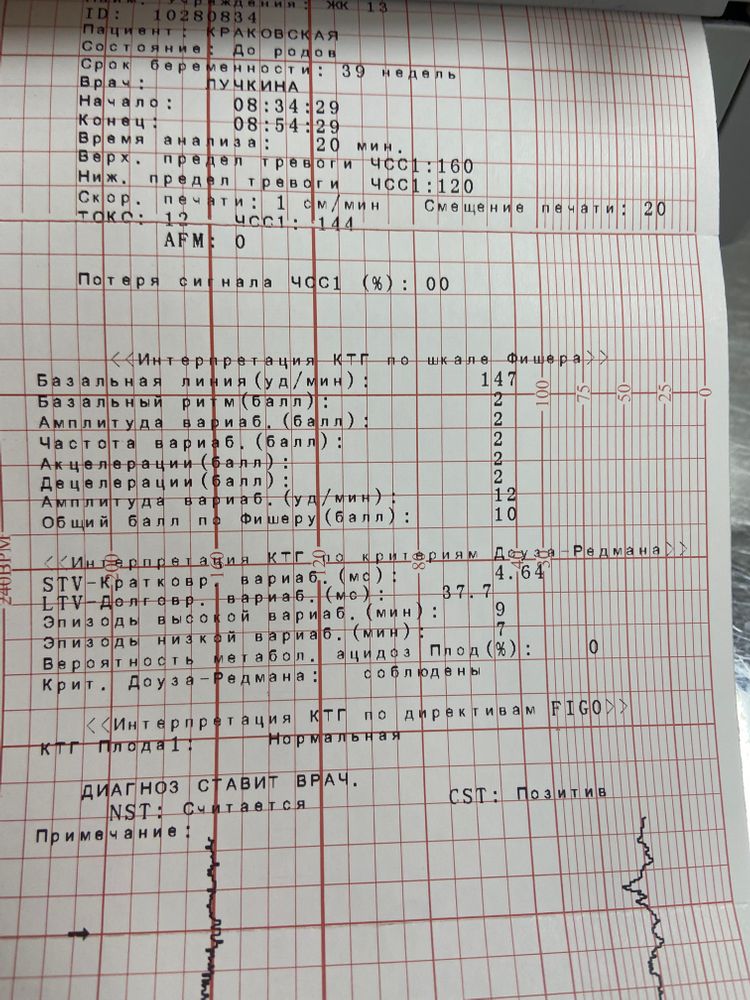 Наим. Учреждения: ЖК 13
ID: 10280834
Пациент: КРАКОВСКАЯ
Состояние: До родов
Срок беременности: 39 недель
Врач: ПУЧКИНА
Начало: 08:34:29
Конец: 08:54:29
Время анализа: 20 мин.
Верх. предел тревоги ЧСС1:160
Ниж. предел тревоги ЧСС1:120
Скор. печати: 1 см/мин Смещение печати: 20
ТОКО: 12 ЧСС1: 144
AFM: 0
Потеря сигнала ЧСС1 (%): 00
<<Интерпретация КТГ по шкале Фишера>>
Базальная линия(уд/мин): 147
Базальный ритм(балл): 2
Амплитуда вариаб.(балл): 2
Частота вариаб.(балл): 2
Акцелерации(балл): 2
Децелерации(балл): 2
Амплитуда вариаб.(уд/мин): 12
Общий балл по Фишеру(балл): 10
100 75 50 25 0
<<Интерпретация КТГ по критериям Доуза-Редмана>>
240BPM
STV-Кратковр. вариаб.(мс): 4.64
LTV-Долговр. вариаб.(мс): 37.7
Эпизодь высокой вариаб.(мин): 9
Эпизодь низкой вариаб.(мин): 7
Вероятность метабол. ацидоз Плод(%): 0
Крит. Доуза-Редмана: соблюдены
<<Интерпретация КТГ по директивам FIGO>>
КТГ Плода1: Нормальная
ДИАГНОЗ СТАВИТ ВРАЧ.
NST: Считается CST: Позитив
Примечание: